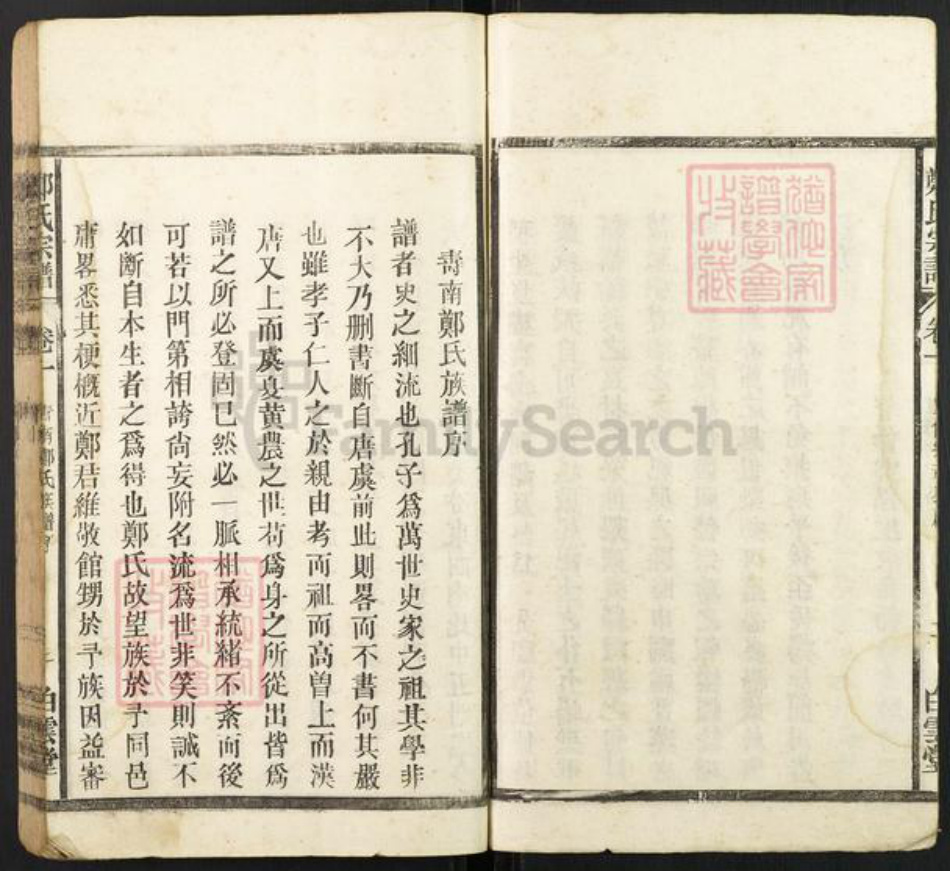 鄭氏宗譜
卷一
白雲堂
譜學會
收藏
壽南鄭氏族譜序
譜者史之細流也孔子爲萬世史家之祖其學非
不大乃删書斷自唐虞前此則畧而不書何其嚴
也雖孝子仁人之於親由考而祖而高曾上而漢
唐又上而虞夏黄農之世苟爲身之所從出皆爲
譜之所必登固已然必一脈相承統緒不紊而後
可若以門第相誇尚妄附名流爲世非笑則誠不
如斷自本生者之爲得也鄭氏故望族於予同邑
庸畧悉其梗概近鄭君維敬館甥於予族因益審
鄭氏宗譜
卷一
壽南鄭氏族譜序
白雲堂
FamilySearch